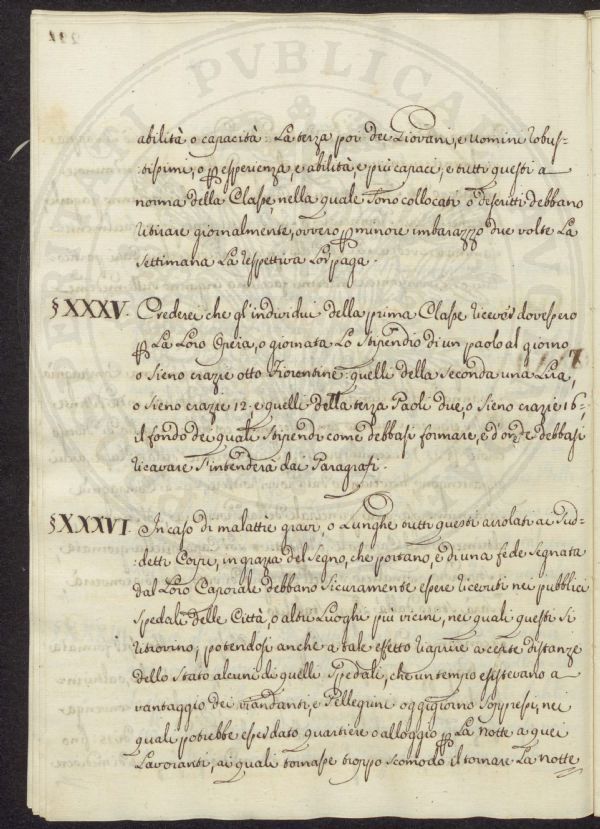 abilità o capacità: La terza poi dei Giovani, e uomini robus=
=tissimi, o p esperienza, e abilità, e più capaci, e tutti questi a
norma della Classe, nella quale sono collocati o descritti debbano
ritirare giornalmente, ovvero p minore imbarazzo due volte La
Settimana La respettiva Lor paga.
§XXXV. Crederei che gl'individui della prima Classe dovessero
p La Loro Opera, o giornata Lo stipendio di un paolo al giorno
o sieno crazie otto Fiorentine: quelli della seconda una Lira,
o sieno crazie 12. e quelli della terza Paoli due, o sieno crazie 16=
il fondo dei quali stipendi come debbasi formare, e d'onde debbasi
ricavare s'intenderà dai Paragrafi.
§XXXVI. In caso di malattie gravi, o Lunghe tutti questi arrolati ai Sud=
=detti Corpi, in grazia del segno, che portano, e di una fede segnata
dal Loro Caporale debbano sicuramente essere ricevuti nei pubblici
spedali delle Città, o altri Luoghi più vicini, nei quali questi si
ritrovino, potendosi anche a tale effetto riaprire a certe distanze
dello Stato alcuni di quelli Spedali, che un tempo esistevano a
vantaggio dei viandanti, e Pellegrini oggigiorno soppressi, nei
quali potrebbe esser dato quartiere o alloggio p La notte a quei
Lavoranti, ai quali tornasse troppo scomodo il tornare La notte
PUBLICA